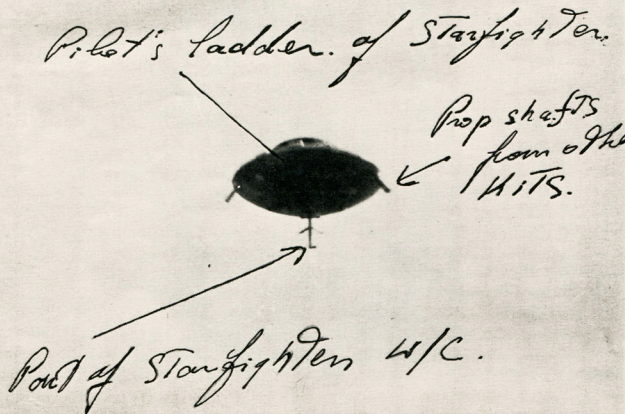 Pilot's ladder. of Starfighter.
Prop shafts
from othe
KITS.
Part of Starfighter W/C.